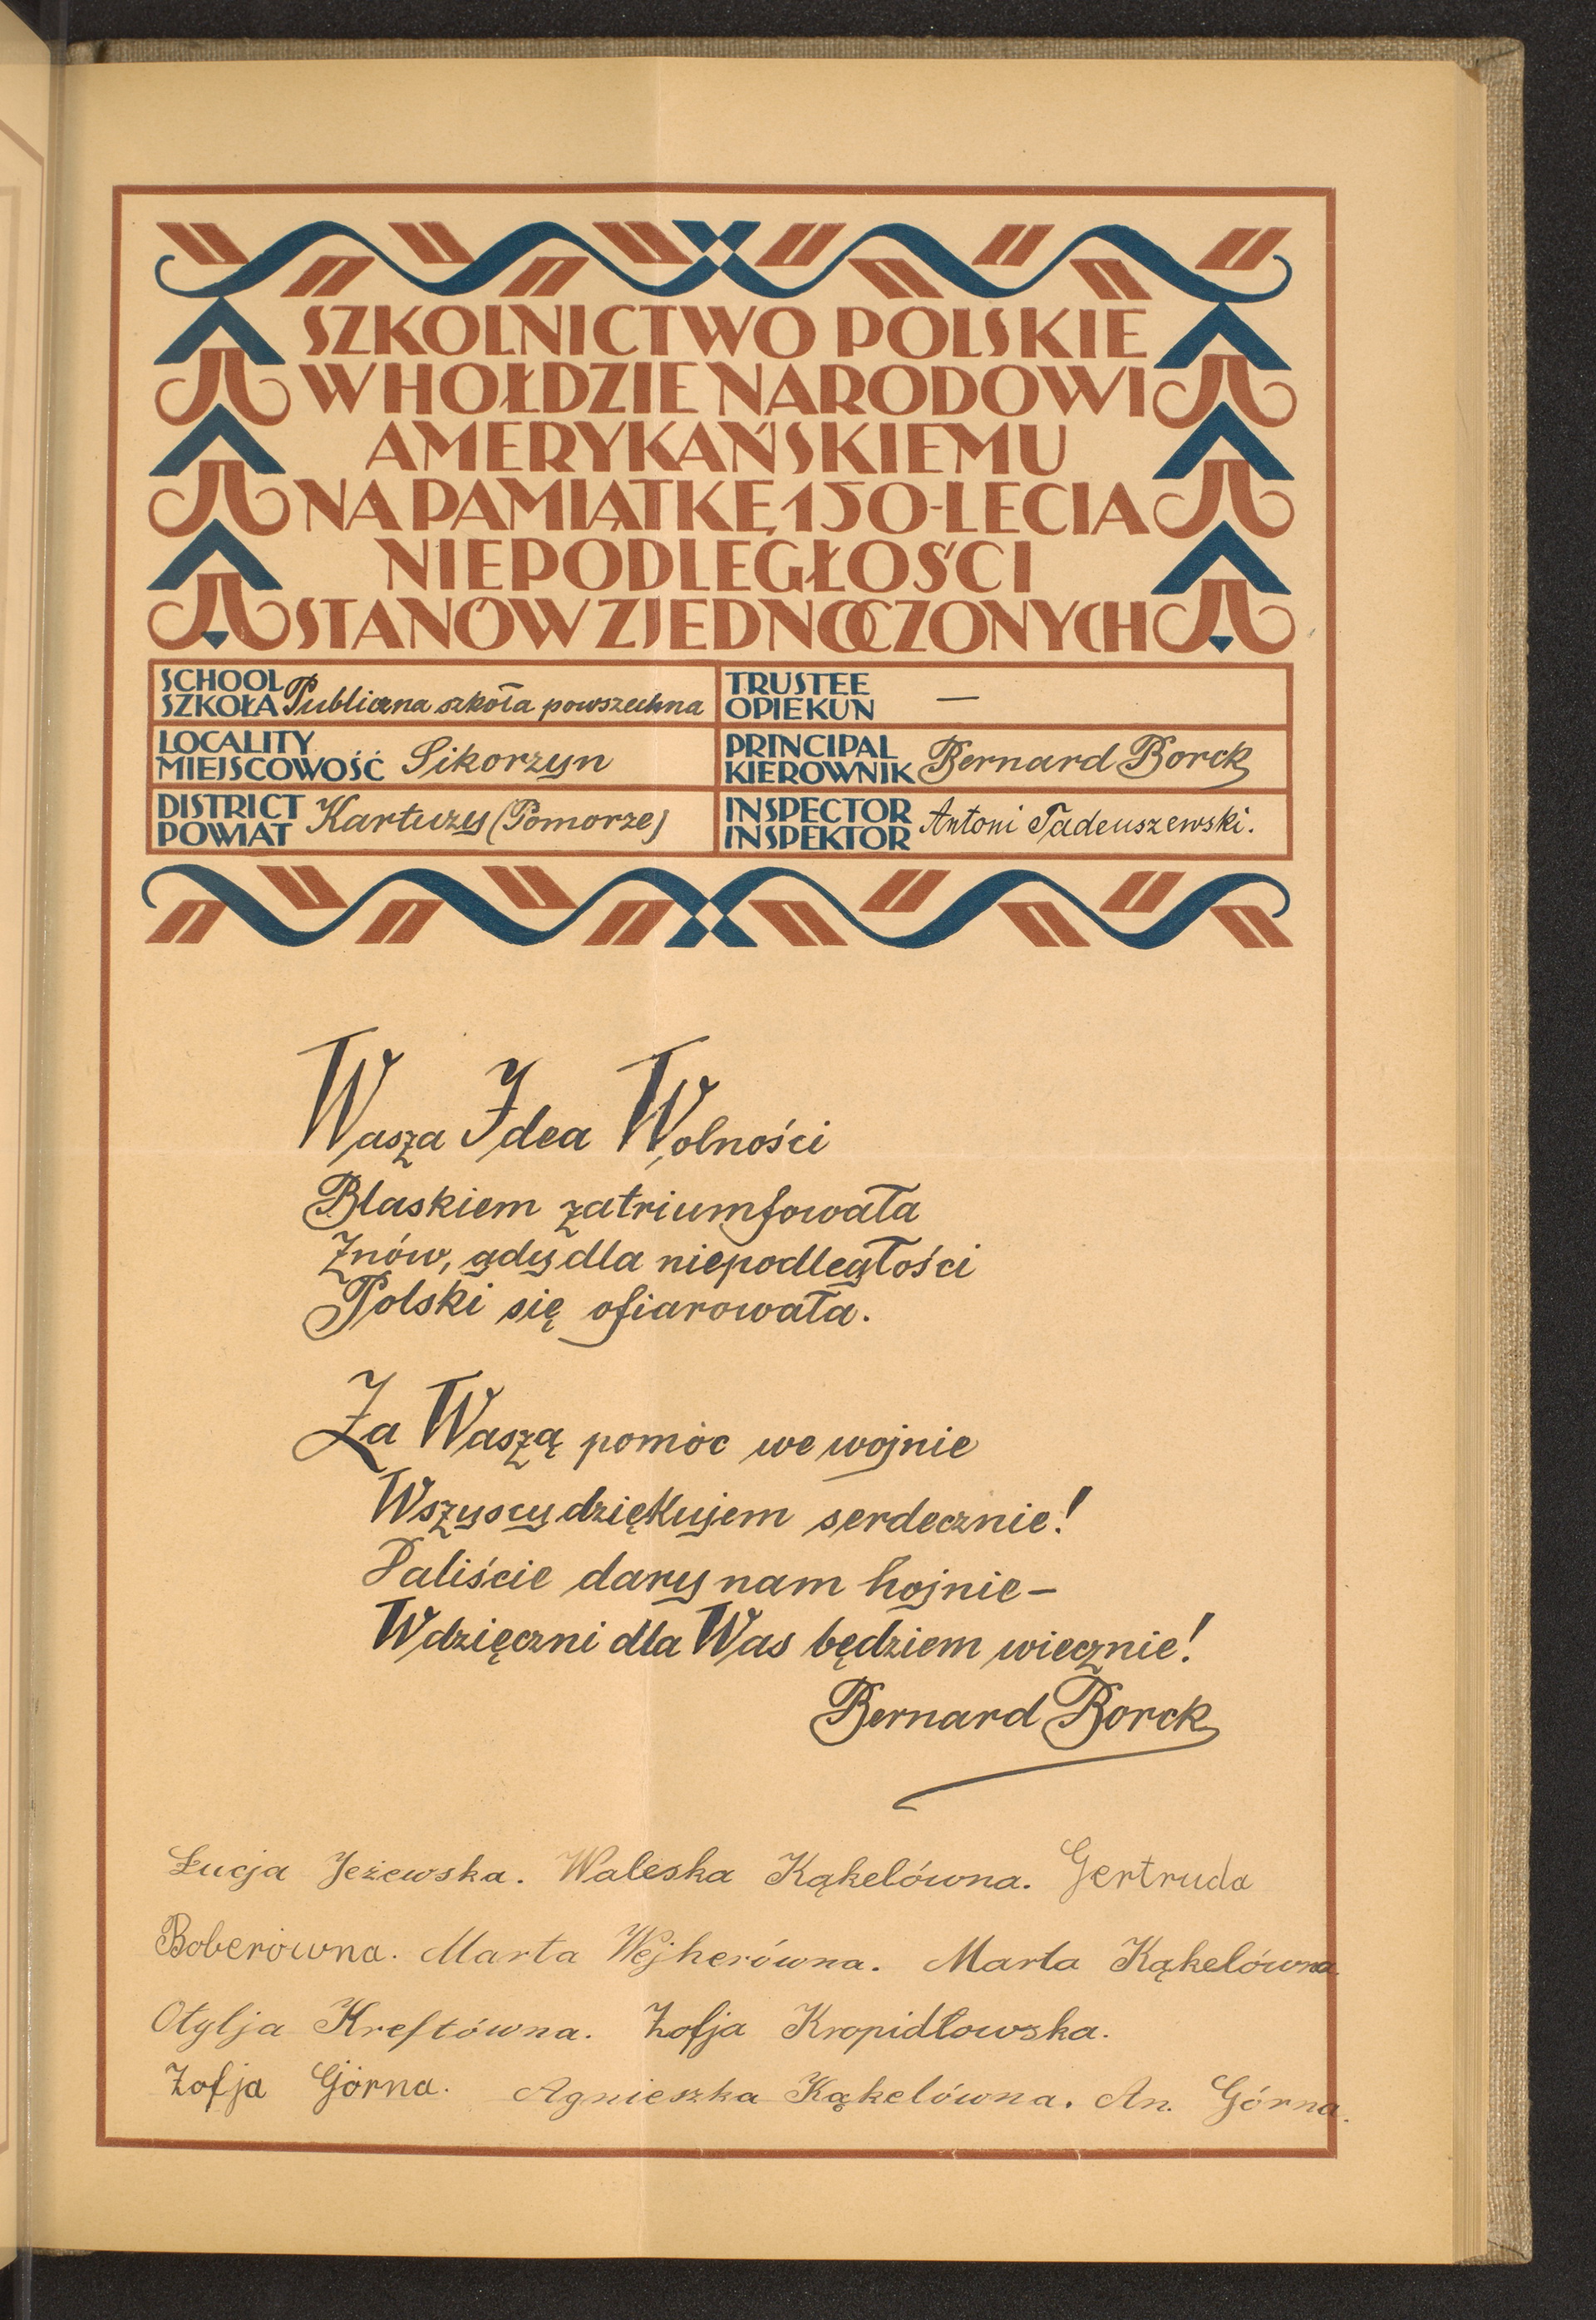 SZKOLNICTWO POLSKIE
W HOŁDZIE NARODOWI
AMERYKAŃSKIEMU
NA PAMIĄTKĘ 150-LECIA
NIEPODLEGŁOŚCI
STANÓW ZJEDNOCZONYCH
SCHOOL
SZKOŁA Publiczna szkoła powszechna
TRUSTEE
OPIEKUN —
LOCALITY
MIEJSCOWOŚĆ Sikorzyn
PRINCIPAL
KIEROWNIK Bernard Borck
DISTRICT
POWIAT Kartuzy (Pomorze)
INSPECTOR
INSPEKTOR Antoni Tadeuszewski.
Wasza Idea Wolności
Blaskiem zatriumfowała
Znów, gdy dla niepodległości
Polski się ofiarowała.
Za Waszą pomoc we wojnie
Wszyscy dziękujem serdecznie!
Daliście dary nam hojnie—
Wdzięczni dla Was będziem wiecznie!
Bernard Borck
Łucja Jeżewska. Waleska Kąkelówna. Gertruda
Boberówna. Marta Wejherówna. Marta Kąkelówna.
Otylja Kreftówna. Zofja Kropidłowska.
Zofja Górna. Agnieszka Kąkelówna. An. Górna.